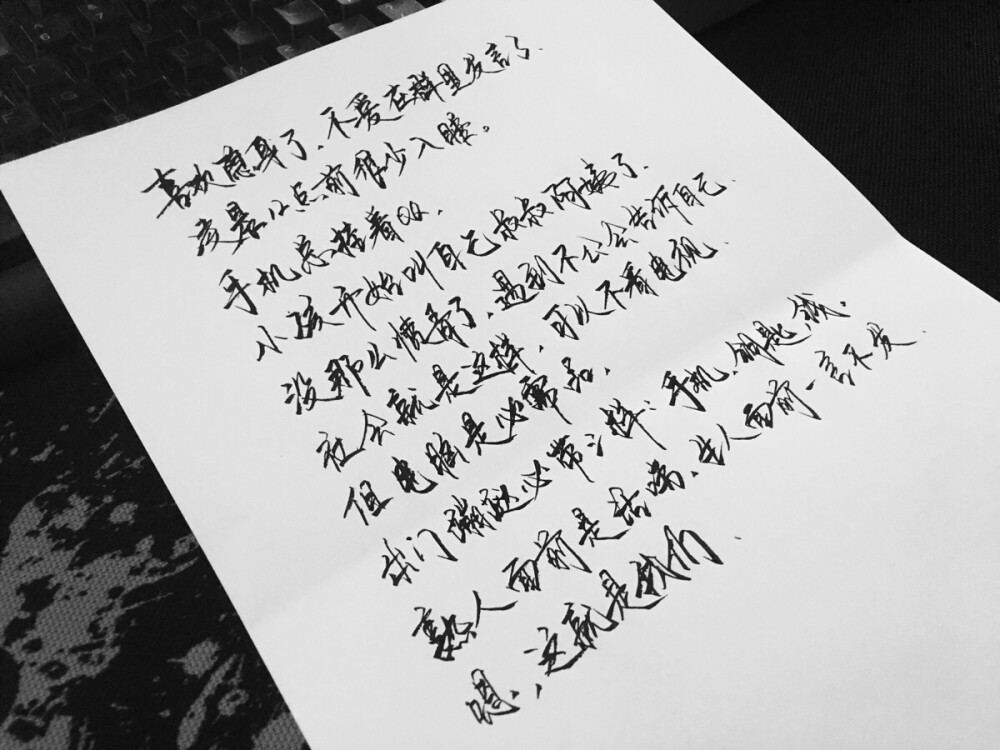 喜欢隐身了、不爱在群里发言了.
凌晨12点前很少入睡。
手机总挂着QQ.
小孩开始叫自己叔叔阿姨了.
没那么愤青了、遇到不公会告诉自己.
社会就是这样、可以不看电视.
但电脑是必需品.
出门蹦跶必带3样:手机、钥匙、钱.
熟人面前是话唠、生人面前一言不发.
嗯、这就是我们.